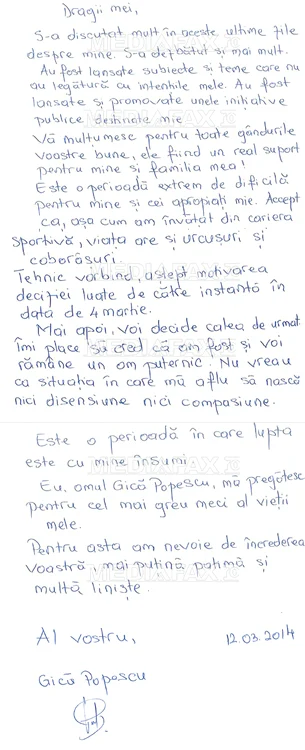 Dragii mei,
S-a discutat mult în aceste ultime zile
despre mine. S-a dezbătut și mai mult.
Au fost lansate subiecte și teme care nu
au legătură cu intențiile mele. Au fost
lansate și promovate unele inițiative
publice destinate mie
Vă mulțumesc pentru toate gândurile
voastre bune, ele fiind un real suport
pentru mine și familia mea!
Este o perioadă extrem de dificilă
pentru mine și cei apropiați mie. Accept
ca, așa cum am învățat din cariera
sportivă, viața are și urcușuri și
coborâsuri.
Tehnic vorbind, aștept motivarea
deciziei luate de către instanță în
data de 4 martie.
Mai apoi, voi decide calea de urmat
Îmi place să cred că am fost și voi
rămâne un om puternic. Nu vreau
ca situația în care mă aflu să nască
nici disensiune nici compasiune.
Este o perioadă în care lupta
este cu mine însumi
Eu, omul Gică Popescu, mă pregătesc
pentru cel mai greu meci al vieții
mele.
Pentru asta am nevoie de încrederea
voastră, mai puțină patimă și
multă liniște.
Al vostru, 12.03.2014
Gică Popescu
MEDIAFAX